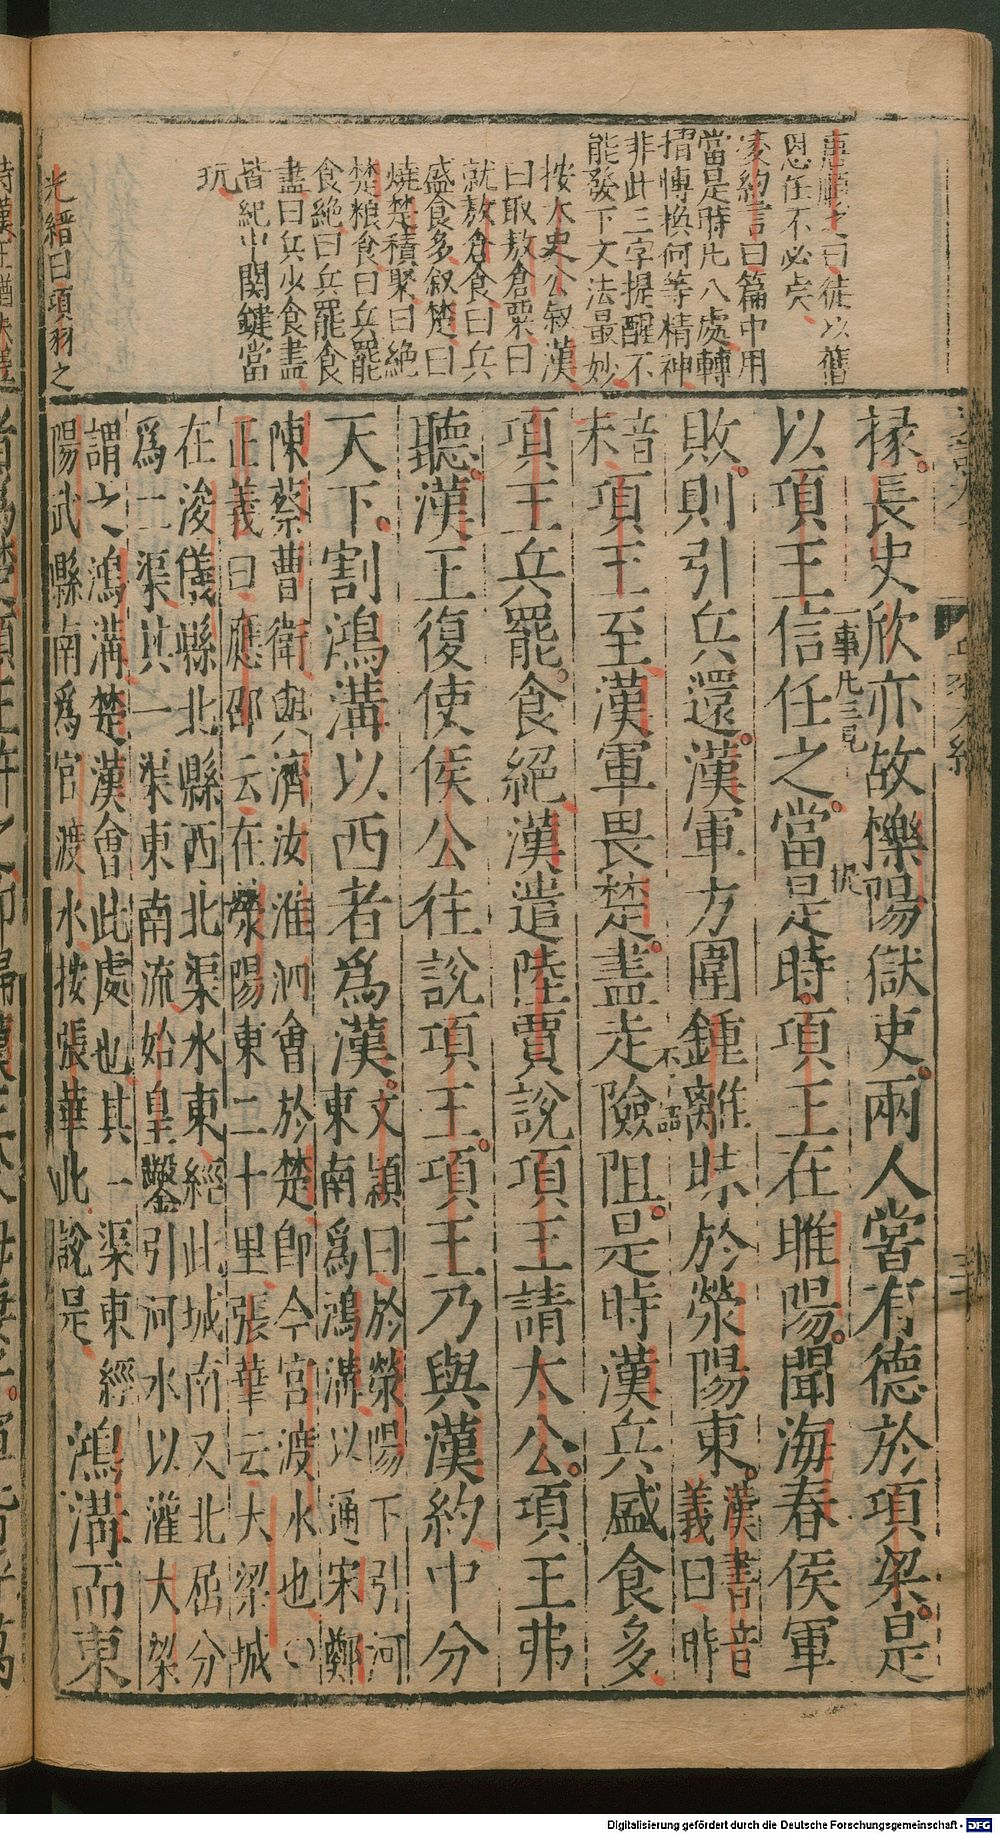 惠□之曰徒以舊
恩任不必賢
凌約言曰篇中用
當是時凡八處轉
摺轉換何等精神
非此三字提醒不
能發下文法最妙
按太史公敘漢
曰取敖倉粟曰
就敖倉食曰兵
盛食多叙楚曰
燒楚積聚曰絕
楚粮食曰兵罷
食絕曰兵罷食
盡曰兵少食盡
皆紀中関鍵當
玩
光縉曰項羽之
祿長史欣亦故櫟陽獄吏兩人嘗有德於項梁是
一事凡三見
以項王信任之當是時項王在睢陽聞海春侯軍
敗則引兵還漢軍方圍鍾離昧於滎陽東漢書音
義曰昧
音末項王至漢軍畏楚盡走險阻是時漢兵盛食多
項王兵罷食絕漢遣陸賈說項王請太公項王弗
聽漢王復使侯公往說項王項王乃與漢約中分
天下割鴻溝以西者為漢文穎曰於滎陽下引河
東南為鴻溝以通宋鄭
陳蔡曹衛與濟汝淮泗會於楚即今官渡水也○
正義曰應邵云在滎陽東二十里張華云大梁城
在浚儀縣北縣西北渠水東經此城南又北屈分
為二渠其一渠東南流始皇鑿引河水以灌大梁
謂之鴻溝楚漢會此處也其一渠東經
陽武縣南為官渡水按張華此說是
鴻溝而東
Digitalisierung gefördert durch die Deutsche Forschungsgemeinschaft - DFG